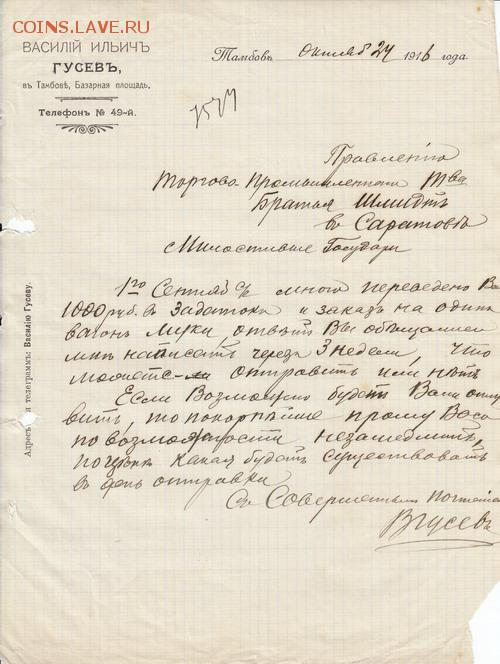 COINS.LAVE.RU
ВАСИЛІЙ ИЛЬИЧЪ
ГУСЕВЪ,
въ Тамбовѣ, Базарная площадь,
Телефонъ № 49-й.
Тамбовъ Октяб 24 1916 года.
Правленію
Торгово Промышленнаго Тва
Братья Шмидтъ
въ Саратовѣ
Милостивые Государи
1го Сентяб с/г мною переведено Ва
1000 руб. въ Задатокъ и заказъ на одинъ
вагонъ Муки, отвѣтъ Вы обѣщались
мнѣ написать черезъ 3 недели, что
можете-ли отправить или нѣтъ
Если Возможно будетъ Вами отпу
вить, то покорнѣйше прошу Васъ
по возможности незамедлить,
по цѣнѣ какая будетъ существовать
въ день отправки
Съ Совершеннымъ почтені
ВГусевъ
Адресъ и телеграммъ: Василію Гусеву.